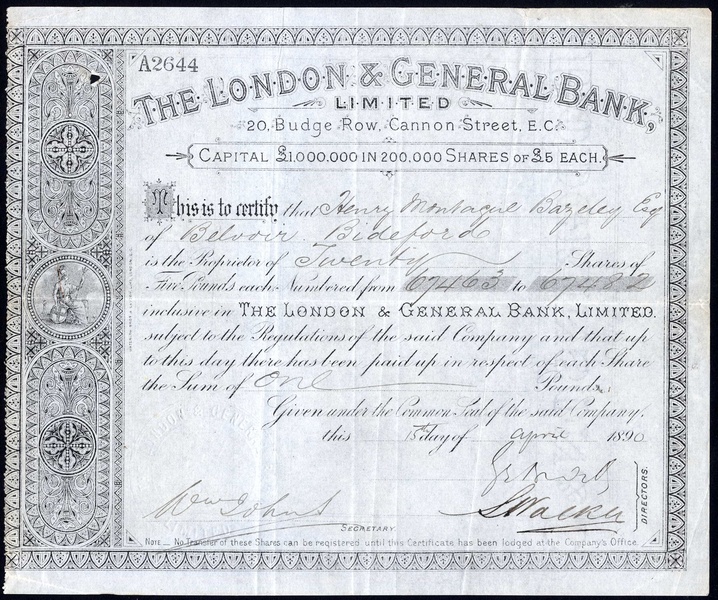 A2644
THE LONDON & GENERAL BANK,
LIMITED
20, Budge Row, Cannon Street, E.C.
CAPITAL £1,000,000 IN 200,000 SHARES OF £5 EACH.
This is to certify that Henry Montague Bazeley Esq
of Belvoir Bideford
is the Proprietor of Twenty Shares of
Five Pounds each Numbered from 67463 to 67482
inclusive in THE LONDON & GENERAL BANK, LIMITED.
subject to the Regulations of the said Company and that up
to this day there has been paid up in respect of each Share
the Sum of One Pounds:
Given under the Common Seal of the said Company,
this 15th day of April 1890
S Walker
DIRECTORS.
SECRETARY
NOTE — No Transfer of these Shares can be registered until this Certificate has been lodged at the Company's Office.